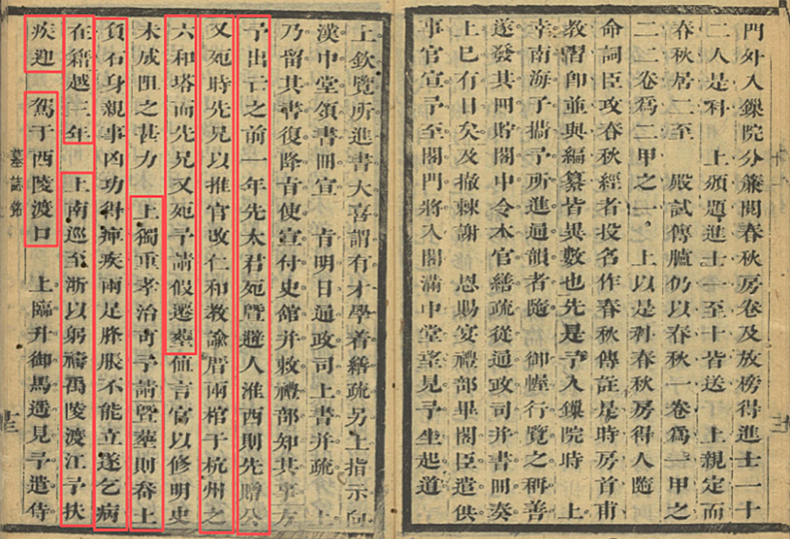 門外入鏁院分簾閱春秋房卷及放榜得進士一十
二人是科　上頒題進士一至十皆送　上親定而
春秋居二至　殿試傳臚仍以春秋一卷爲一甲之
二二卷爲二甲之一　上以是科春秋房得人隨
命詞臣攻春秋經者投名作春秋傳註是時房首甫
教習卽並與編纂皆異數也先是予入鏁院時　上
幸南海子攜予所進通韻者隨　御幄行覽之稱善
遂發其冊貯閣中令本官繕疏從通政司幷書冊奏
上已有日矣及撤棘謝　恩賜宴禮部畢閣臣遣供
事官宣予至閣門將入閣滿中堂望見予坐起道
上欽覽所進書大喜謂有才學着繕疏另上指示向
漢中堂領書冊宣　旨明日通政司上書幷疏　上
乃留其書復降旨使宣付史館幷敕禮部知其事方
予出亡之前一年先太君死曁避人淮西則先贈公
又死時先兄以推官改仁和敎諭厝兩棺于杭州之
六和塔而先兄又死予請假遷塟値言官以修明史
未成阻之甚力　上獨重孝治可予請曁塟則吞土
負石身親事凶功得痺疾兩足脹不能立遂乞病
在籍越三年　上南巡至浙以躬禱禹陵渡江予扶
疾迎　駕于西陵渡口　上臨升御馬遥見予遣侍
墓誌銘